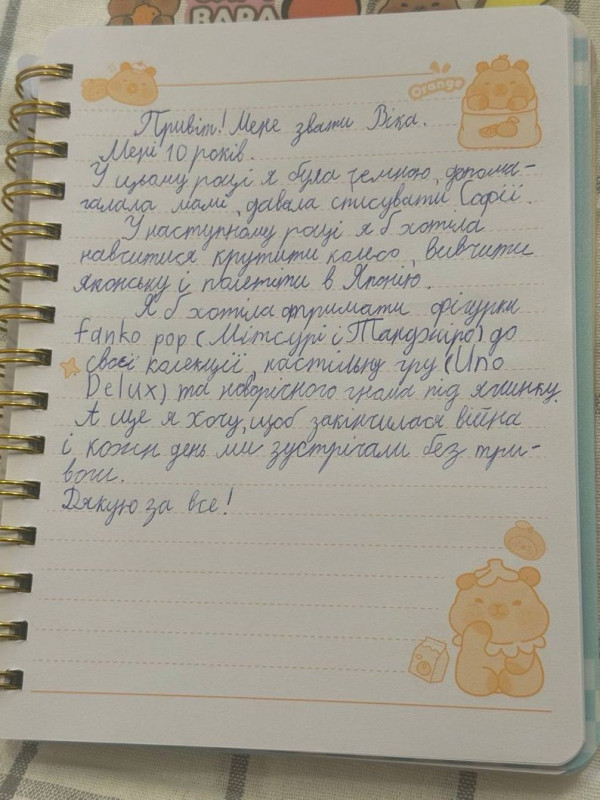 BAPA
Orange
Привіт! Мене звати Віка.
Мені 10 років.
У цьому році я була чемною, допома-
гала мамі, давала списувати Софії.
У наступному році я б хотіла
навчитися крутити колесо, вивчити
японську і полетіти в Японію.
Я б хотіла отримати фігурки
fanko pop (Мітсурі і Танджіро) до
своєї колекції, настільну гру (Uno
Delux) та новорічного гнома під ялинку.
А ще я хочу, щоб закінчилася війна
і кожн день ми зустрічали без три-
воги.
Дякую за все!